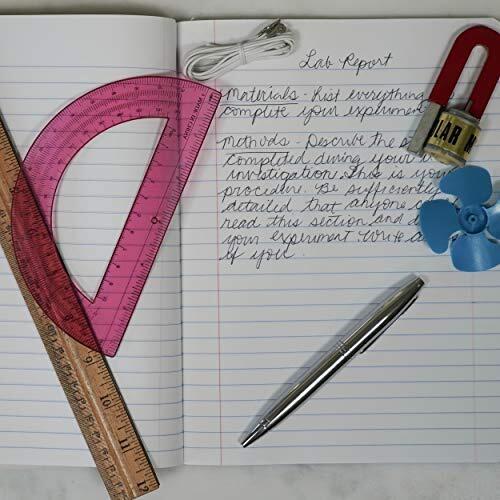 Lab Report
Materials - List everything
complete your experiment
Methods - Describe the s
completed during your i
investigation. This is your
procedure. Be sufficiently
detailed that anyone c
read this section and d
your experiment. Write a
if you
LAR M
9
10
11
12